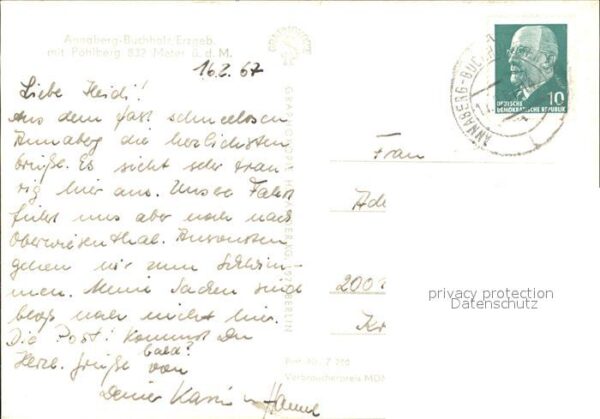 Annaberg-Buchholz/Erzgeb.
mit Pöhlberg 832 Meter ü. d. M.
16.2.67
Liebe Heidi!
Aus dem fast schneelosen
Annaberg die herzlichsten
Grüße. Es sieht sehr trau
rig hier aus. Unsere Fahrt
führt uns aber noch nach
Oberwiesenthal. Ansonsten
gehen wir zum Schwim-
men. Meine Sachen sind
bloß noch nicht hier.
Die Post! Kommst Du
bald?
Herzl. Grüße von
Deiner Karin
ANNABERG-BUCHHOLZ
10
DEUTSCHE
DEMOKRATISCHE REPUBLIK
Frau
200
privacy protection
Datenschutz
BERLIN
Verbraucherpreis MDN